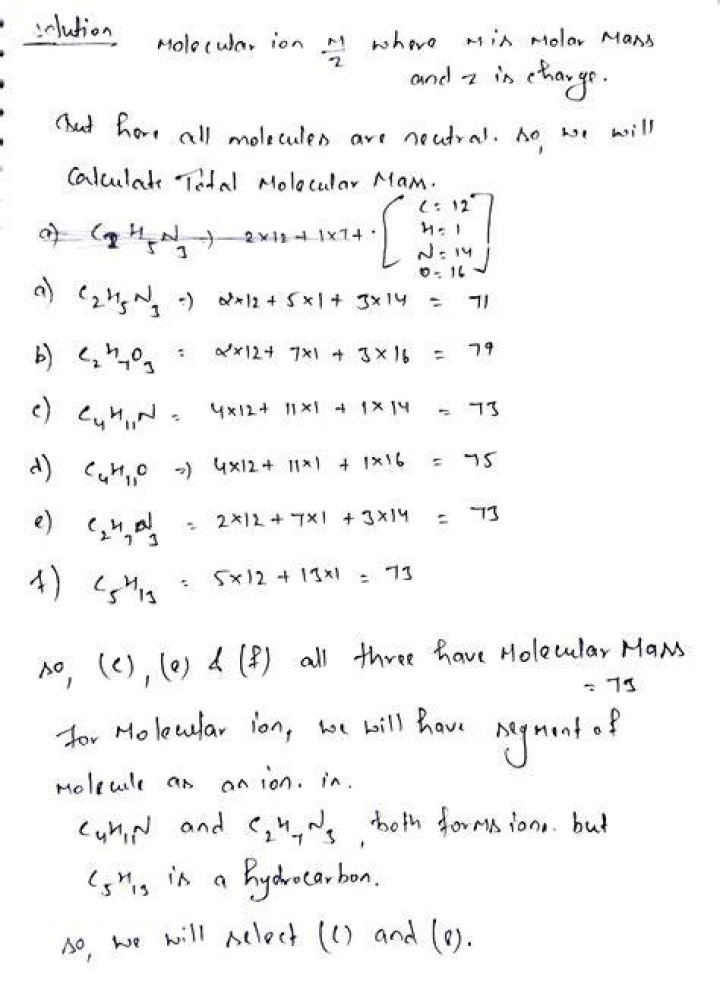 Solution Molecular ion M/z where M is Molar Mass
and z is charge.
But here all molecules are neutral. so, we will
Calculate Total Molecular Mass.
a) C2H5N3 → 2×12 + 1×7 +
C = 12
H = 1
N = 14
O = 16
a) C2H5N3 => 2×12 + 5×1 + 3×14 = 71
b) C2H7O3 = 2×12 + 7×1 + 3×16 = 79
c) C4H11N = 4×12 + 11×1 + 1×14 = 73
d) C4H11O => 4×12 + 11×1 + 1×16 = 75
e) C2H7N3 = 2×12 + 7×1 + 3×14 = 73
f) C5H13 = 5×12 + 13×1 = 73
so, (c), (e) & (f) all three have Molecular Mass
= 73
For Molecular ion, we will have segment of
Molecule as an ion. in.
C4H11N and C2H7N3, both forms ions. but
C5H13 is a hydrocarbon.
so, we will select (c) and (e).